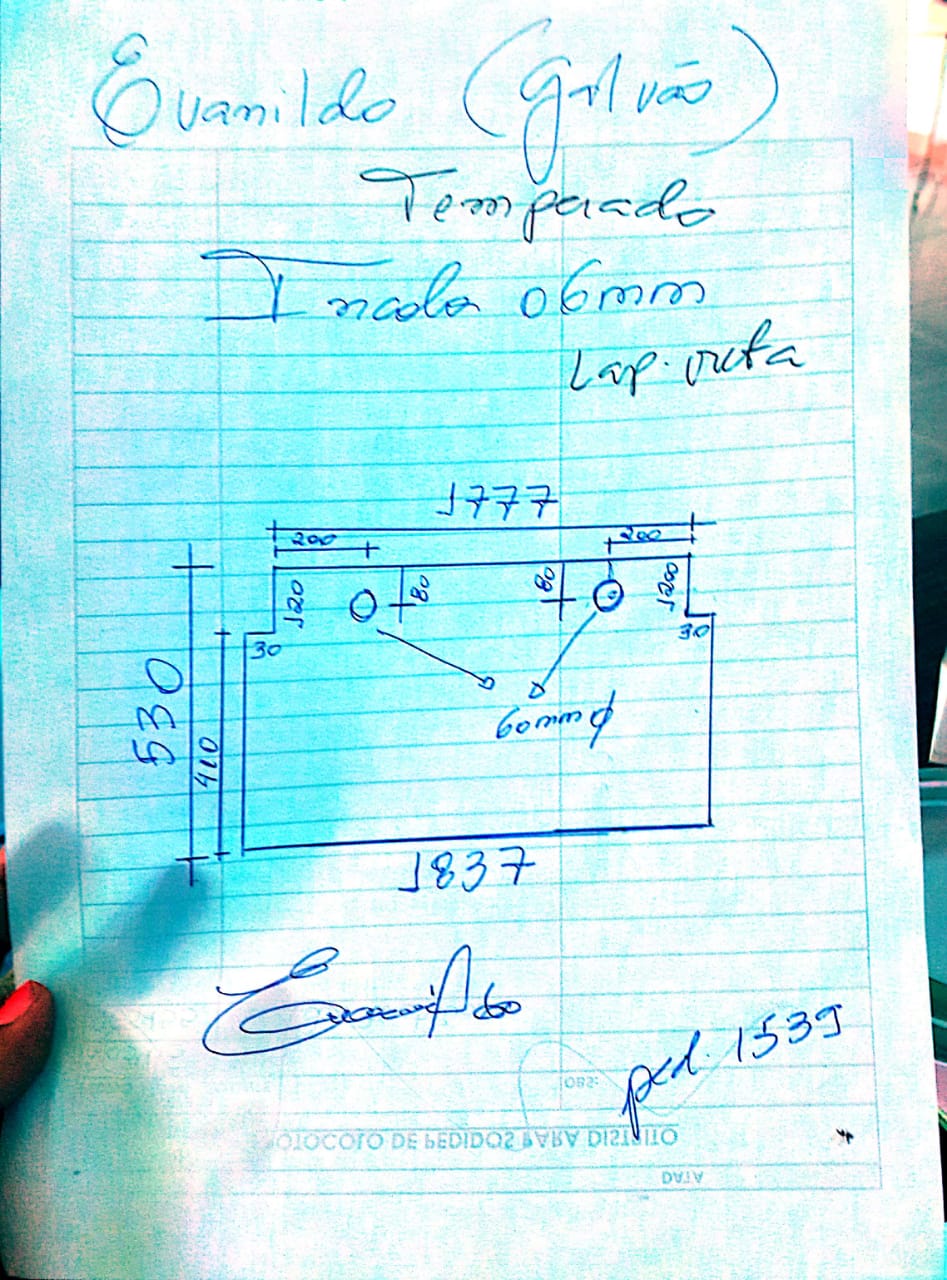 Evanildo (Galvão)
Temperado
Incolor 06mm
Lap. reta
1777
200
200
120
80
80
120
30
30
530
410
60mm ϕ
1837
Evanildo
ped. 1539
OBS:
PROTOCOLO DE PEDIDOS PARA DISTRITO
DATA